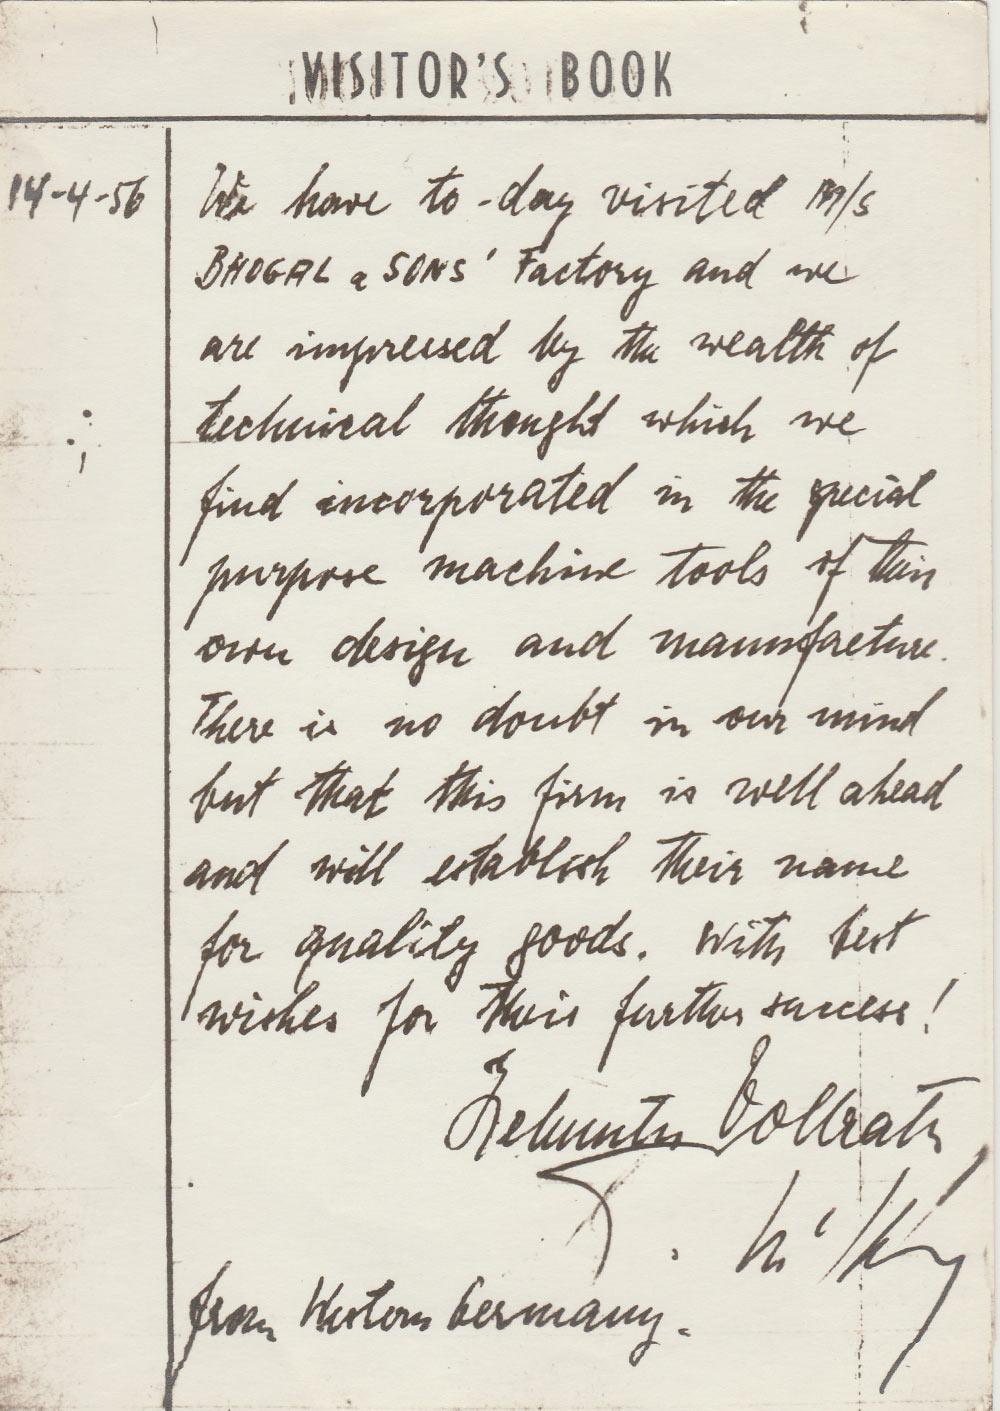 VISITOR'S BOOK
14-4-56
We have to-day visited M/s
BHOGAL & SONS' Factory and we
are impressed by the wealth of
technical thought which we
find incorporated in the special
purpose machine tools of their
own design and manufacture.
There is no doubt in our mind
but that this firm is well ahead
and will establish their name
for quality goods. With best
wishes for their further success!
Helmuth Vollrath
from Western Germany.